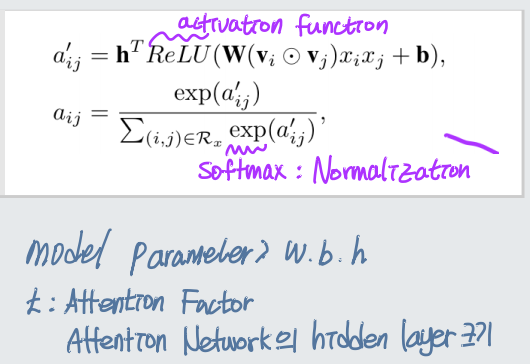 activation function
a'ᵢⱼ = hᵀReLU(W(vᵢ ⊙ vⱼ)xᵢxⱼ + b),
aᵢⱼ = exp(a'ᵢⱼ) / ∑₍ᵢ,ⱼ₎∈Rₓ exp(a'ᵢⱼ),
Softmax : Normalization
model parameter> W.b.h
t : Attention Factor
Attention Network의 hidden layer 크기